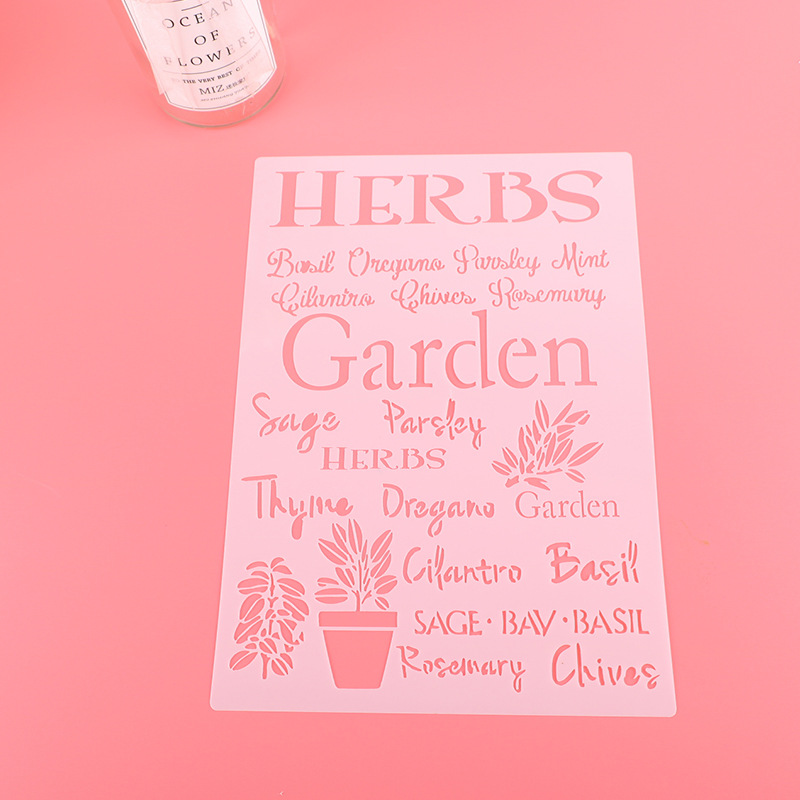 OCEAN
OF
FLOWERS
THE VERY BEST OF
MIZ
HERBS
Basil Oregano Parsley Mint
Cilantro Chives Rosemary
Garden
Sage Parsley
HERBS
Thyme Oregano Garden
Cilantro Basil
SAGE · BAY · BASIL
Rosemary Chives